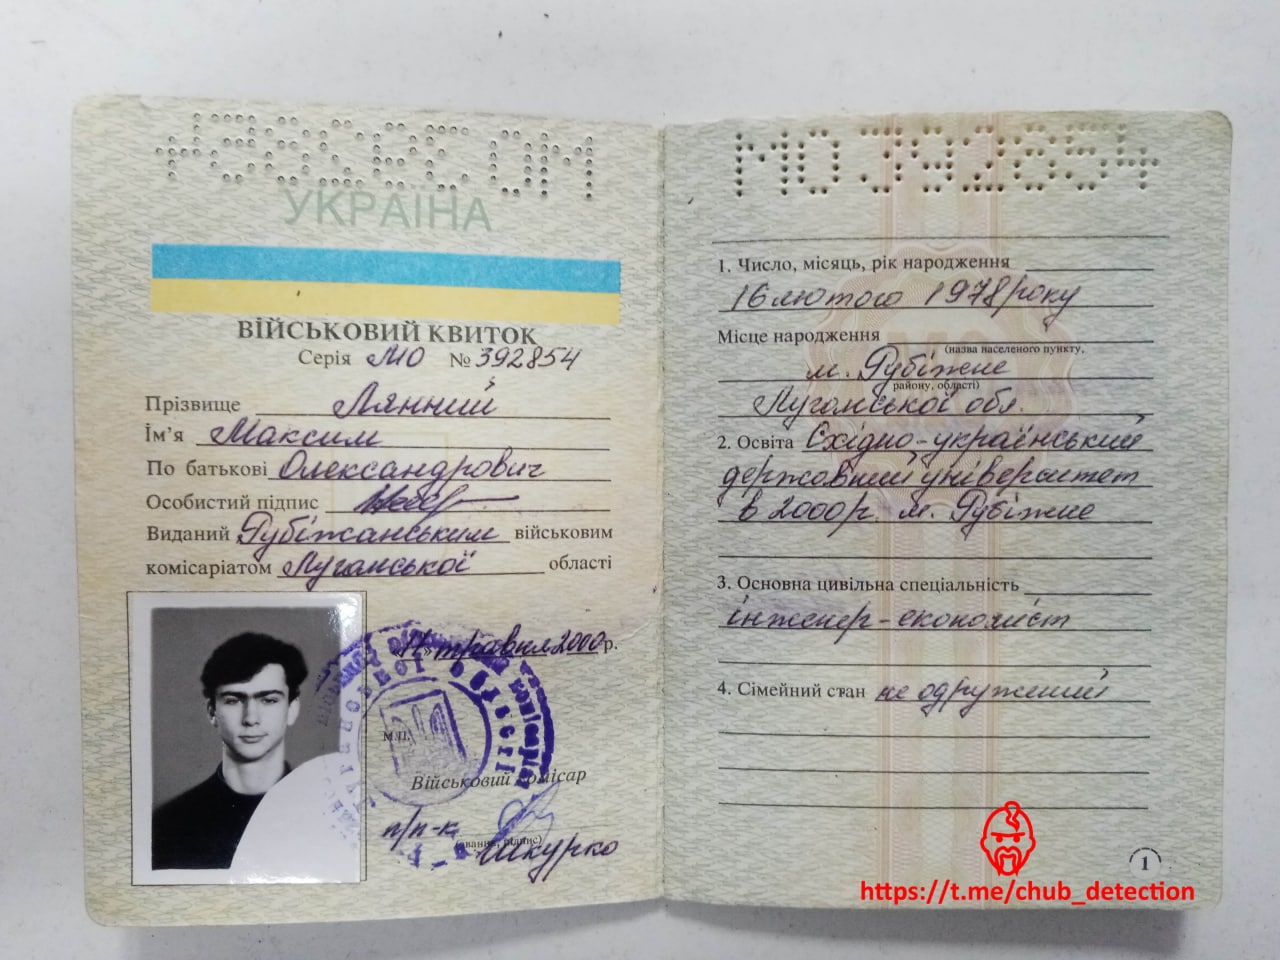 МО 392854
УКРАЇНА
ВІЙСЬКОВИЙ КВИТОК
Серія МО № 392854
Прізвище Лянний
Ім'я Максим
По батькові Олександрович
Особистий підпис
Виданий Рубіжанським військовим
комісаріатом Луганської області
«11» травня 2000 р.
М.П.
Військовий комісар
п/п-к
(звання, підпис)
Шкурко
МО 392854
1. Число, місяць, рік народження
16 лютого 1978 року
Місце народження
(назва населеного пункту,
м. Рубіжне
району, області)
Луганської обл.
2. Освіта Східно-український
державний університет
в 2000 р. м. Рубіжне
3. Основна цивільна спеціальність
інженер-економіст
4. Сімейний стан не одружений
1
https://t.me/chub_detection